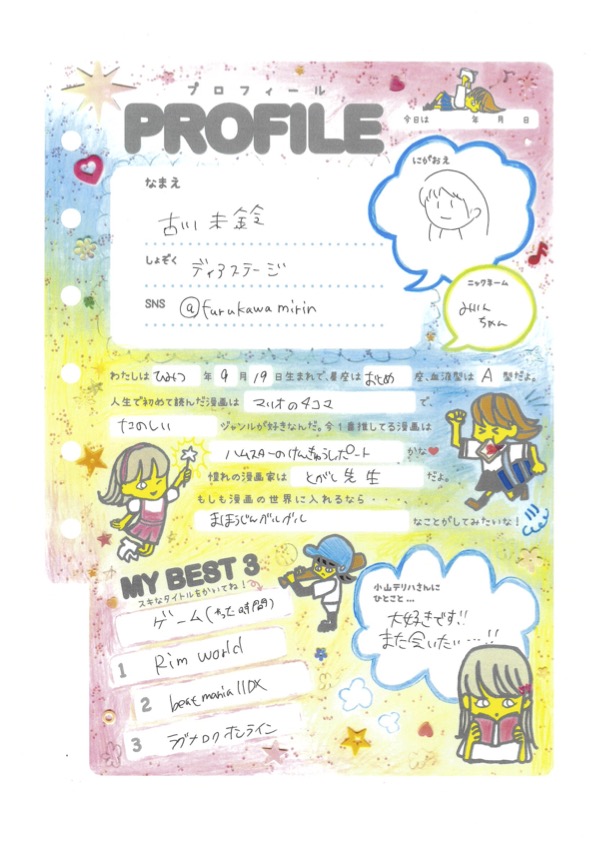 プロフィール
PROFILE
今日は 年 月 日
なまえ
古川未鈴
しょぞく
ディアステージ
SNS
@furukawamirin
にがおえ
ニックネーム
みりん
ちゃん
わたしは ひみつ 年 9 月 19 日生まれで、星座は おとめ 座、血液型は A 型だよ。
人生で初めて読んだ漫画は マリオの4コマ で、
たのしい ジャンルが好きなんだ。今1番推してる漫画は
ハムスターのけんきゅうレポート かな
憧れの漫画家は とがし先生 だよ。
もしも漫画の世界に入れるなら・・・・、
まほうじんグルグル なことがしてみたいな!
MY BEST 3
スキなタイトルをかいてね!
ゲーム(やった時間)
1 Rim world
2 beatmania IIDX
3 ラグナロクオンライン
小山デリハさんに
ひとこと...
大好きです!!
また会いたい…!!